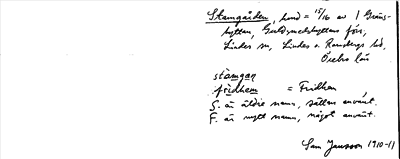 Stamgården, hmd = 15/16 av 1 Gräs-
hyttan, Guldsmedshyttans förs,
Lindes sn, Lindes o Ramsbergs bd,
Örebro län
stàmgan
frìdhem = Fridhem
S. är äldre namn, sällan använt.
F. är nytt namn, något använt.
Sam Jansson 1910-11